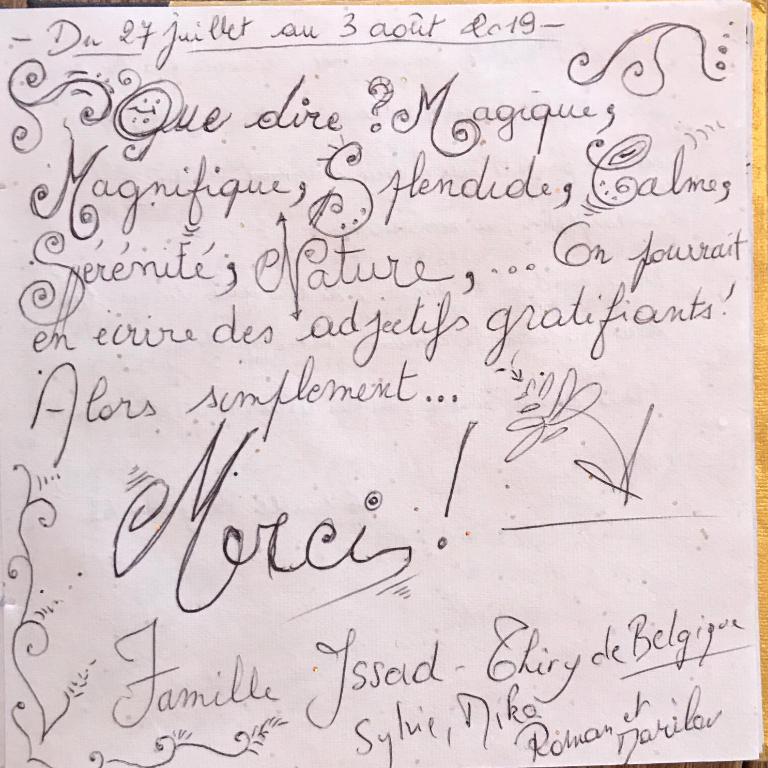 - Du 27 juillet au 3 août 2019 -
Que dire ? Magique,
Magnifique, Splendide, Calme,
Sérénité, Nature, ... On pourrait
en écrire des adjectifs gratifiants !
Alors simplement...
Merci !
Famille Issad - Thiry de Belgique
Sylvie, Miko
Roman et